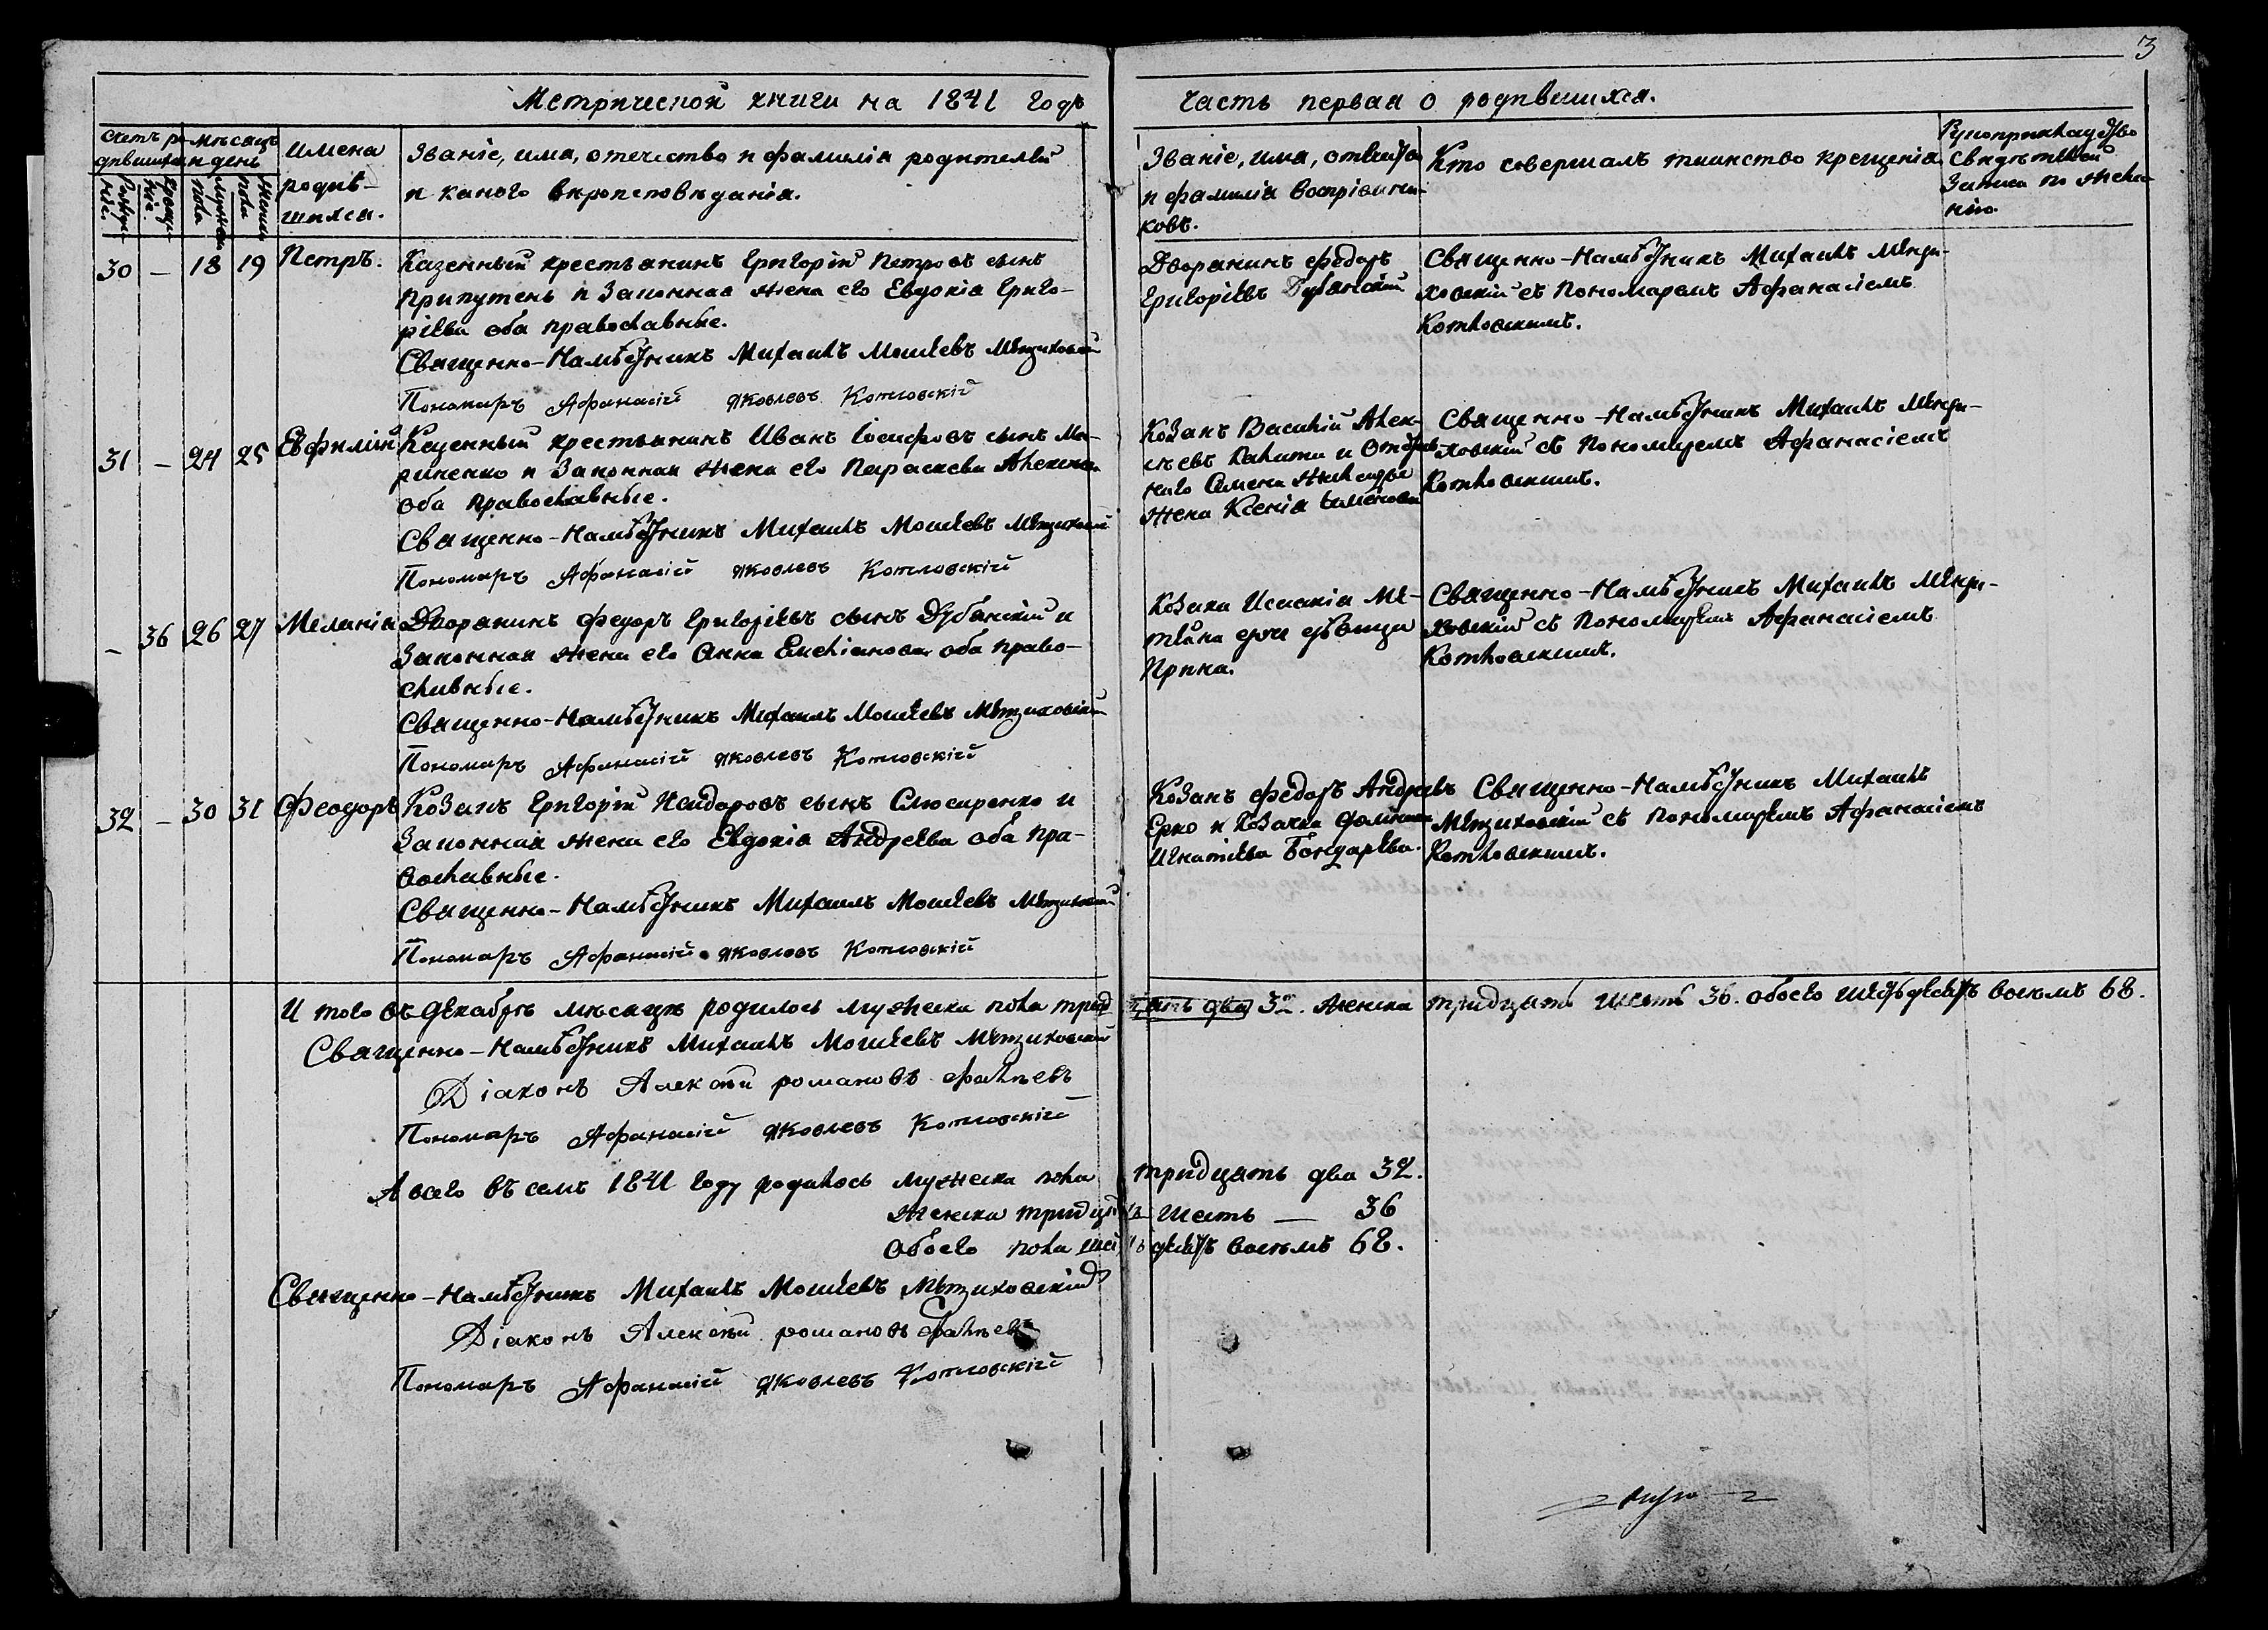 3
Метрической книги на 1841 годъ
часть первая о родившихся.
Счетъ ро- Мѣсяцъ
дившихся и день
Имена
родив-
шихся.
Званіе, имя, отечество и фамилія родителей
и какого вѣроисповѣданія.
Званіе, имя, отечество
и фамилія воспріемни-
ковъ.
Кто совершалъ таинство крещенія
Рукоприкладство
свидѣтелей
записи по жела-
нію.
30 — 18 19 Петръ.
Казенный крестьянинъ Григорій Петровъ сынъ
Припутень и законная жена его Евдокія Григо-
ріева оба православные.
Священно-Намѣстникъ Михаилъ Моисеевъ
Пономаръ Афанасій Яковлевъ Котловскій
Дворянинъ Федоръ
Григоріевъ Дубянскій
Священно-Намѣстникъ Михаилъ
съ Пономаремъ Афанасіемъ
Котловскимъ.
31 — 24 25 Евфимій
Казенный крестьянинъ Иванъ Іосифовъ сынъ Ма-
риненко и законная жена его Параскева
оба православные.
Священно-Намѣстникъ Михаилъ Моисеевъ
Пономаръ Афанасій Яковлевъ Котловскій
Козакъ Василій Алек-
сѣевъ и
Семена
жена Ксенія Семенова
Священно-Намѣстникъ Михаилъ
съ Пономаремъ Афанасіемъ
Котловскимъ.
— 36 26 27 Меланія
Дворянинъ Федоръ Григоріевъ сынъ Дубянскій и
законная жена его Анна Емеліанова оба право-
славные.
Священно-Намѣстникъ Михаилъ Моисеевъ
Пономаръ Афанасій Яковлевъ Котловскій
Козака Исаакія
дочь дѣвица
Ирина.
Священно-Намѣстникъ Михаилъ
съ Пономаремъ Афанасіемъ
Котловскимъ.
32 — 30 31 Феодоръ
Козакъ Григорій сынъ Слюсаренко и
законная жена его Евдокія Андреева оба пра-
вославные.
Священно-Намѣстникъ Михаилъ Моисеевъ
Пономаръ Афанасій Яковлевъ Котловскій
Козакъ Федоръ Андреевъ
и козачка
Игнатіева Бондарева.
Священно-Намѣстникъ Михаилъ
съ Пономаремъ Афанасіемъ
Котловскимъ.
И того въ декабрѣ мѣсяцѣ родилось мужеска пола трид
цать два 32. женска тридцать шесть 36. обоего шестьдесятъ восемь 68.
Священно-Намѣстникъ Михаилъ Моисеевъ
Діаконъ Алексѣй Романовъ
Пономаръ Афанасій Яковлевъ Котловскій
А всего въ семъ 1841 году родилось мужеска пола тридцать два 32.
женска тридцать шесть — 36
обоего пола шестьдесятъ восемь 68.
Священно-Намѣстникъ Михаилъ Моисеевъ
Діаконъ Алексѣй Романовъ
Пономаръ Афанасій Яковлевъ Котловскій